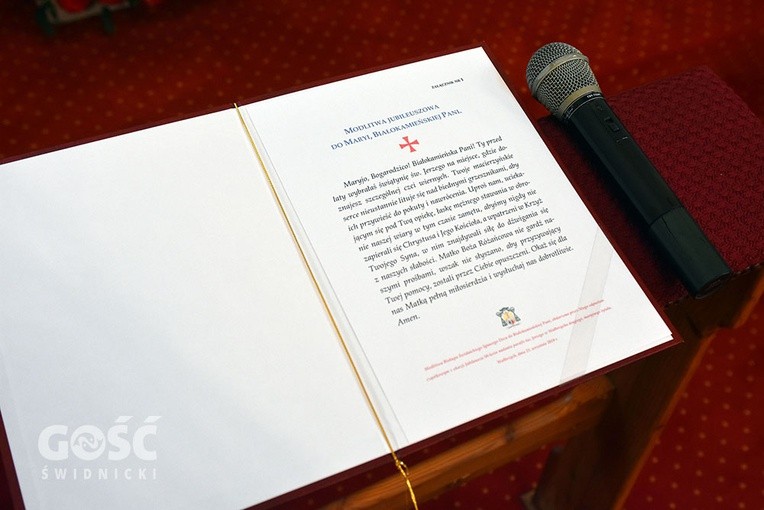 ZAŁĄCZNIK NR 1
MODLITWA JUBILEUSZOWA
DO MARYI, BIAŁOKAMIEŃSKIEJ PANI.
Maryjo, Bogarodzico! Białokamieńska Pani! Ty przed
laty wybrałaś świątynię św. Jerzego na miejsce, gdzie do-
znajesz szczególnej czci wiernych. Twoje macierzyńskie
serce nieustannie lituje się nad biednymi grzesznikami, aby
ich przywieść do pokuty i nawrócenia. Uproś nam, ucieka-
jącym się pod Twą opiekę, łaskę mężnego stawania w obro-
nie naszej wiary w tym czasie zamętu, abyśmy nigdy nie
zapierali się Chrystusa i Jego Kościoła, a wpatrzeni w Krzyż
Twojego Syna, w nim znajdywali siłę do dźwigania się
z naszych słabości. Matko Boża Różańcowa nie gardź na-
szymi prośbami, wszak nie słyszano, aby przyzywający
Twej pomocy, zostali przez Ciebie opuszczeni. Okaż się dla
nas Matką pełną miłosierdzia i wysłuchaj nas dobrotliwie.
Amen.
GOŚĆ
ŚWIDNICKI